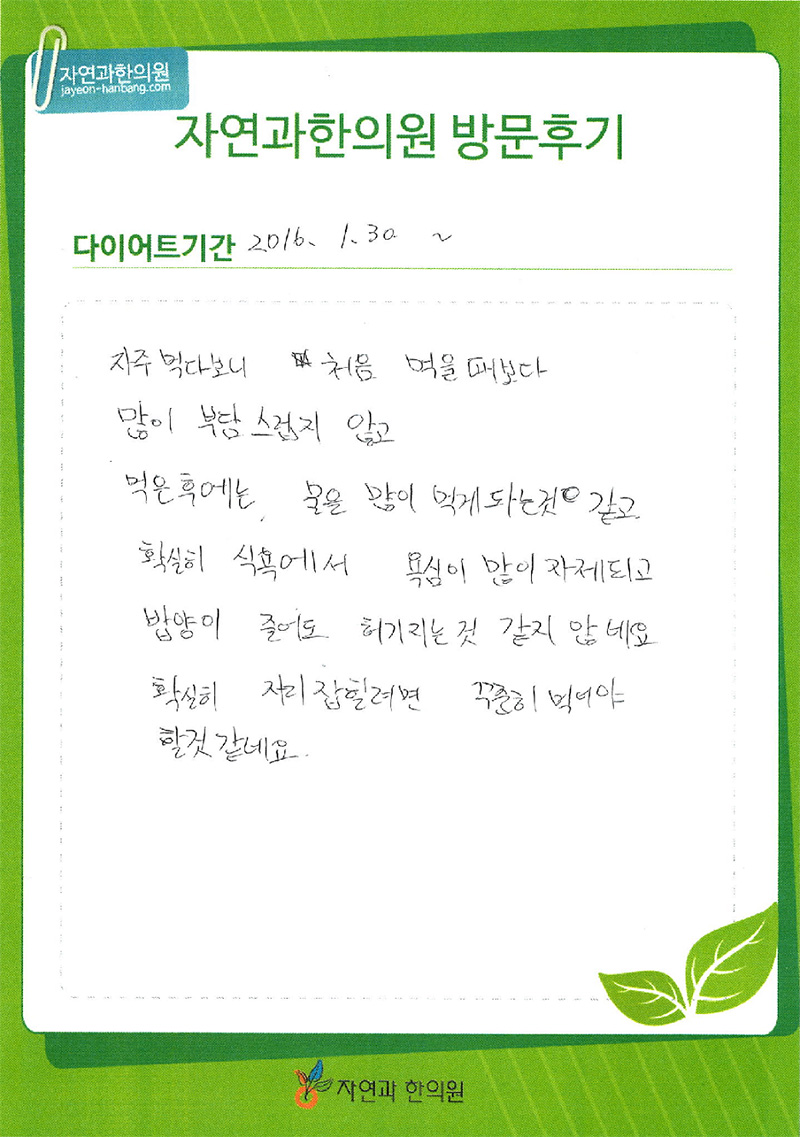 자연과한의원
jayeon-hanbang.com
자연과한의원 방문후기
다이어트기간 2016. 1. 30 ~
자주 먹다보니 처음 먹을 때보다
많이 부담 스럽지 않고
먹은 후에는, 물을 많이 먹게 되는것 같고
확실히 식욕에서 욕심이 많이 자제되고
밥양이 줄어도 허기지는 것 같지 않네요
확실히 자리 잡힐려면 꾸준히 먹어야
할것 같네요.
자연과 한의원